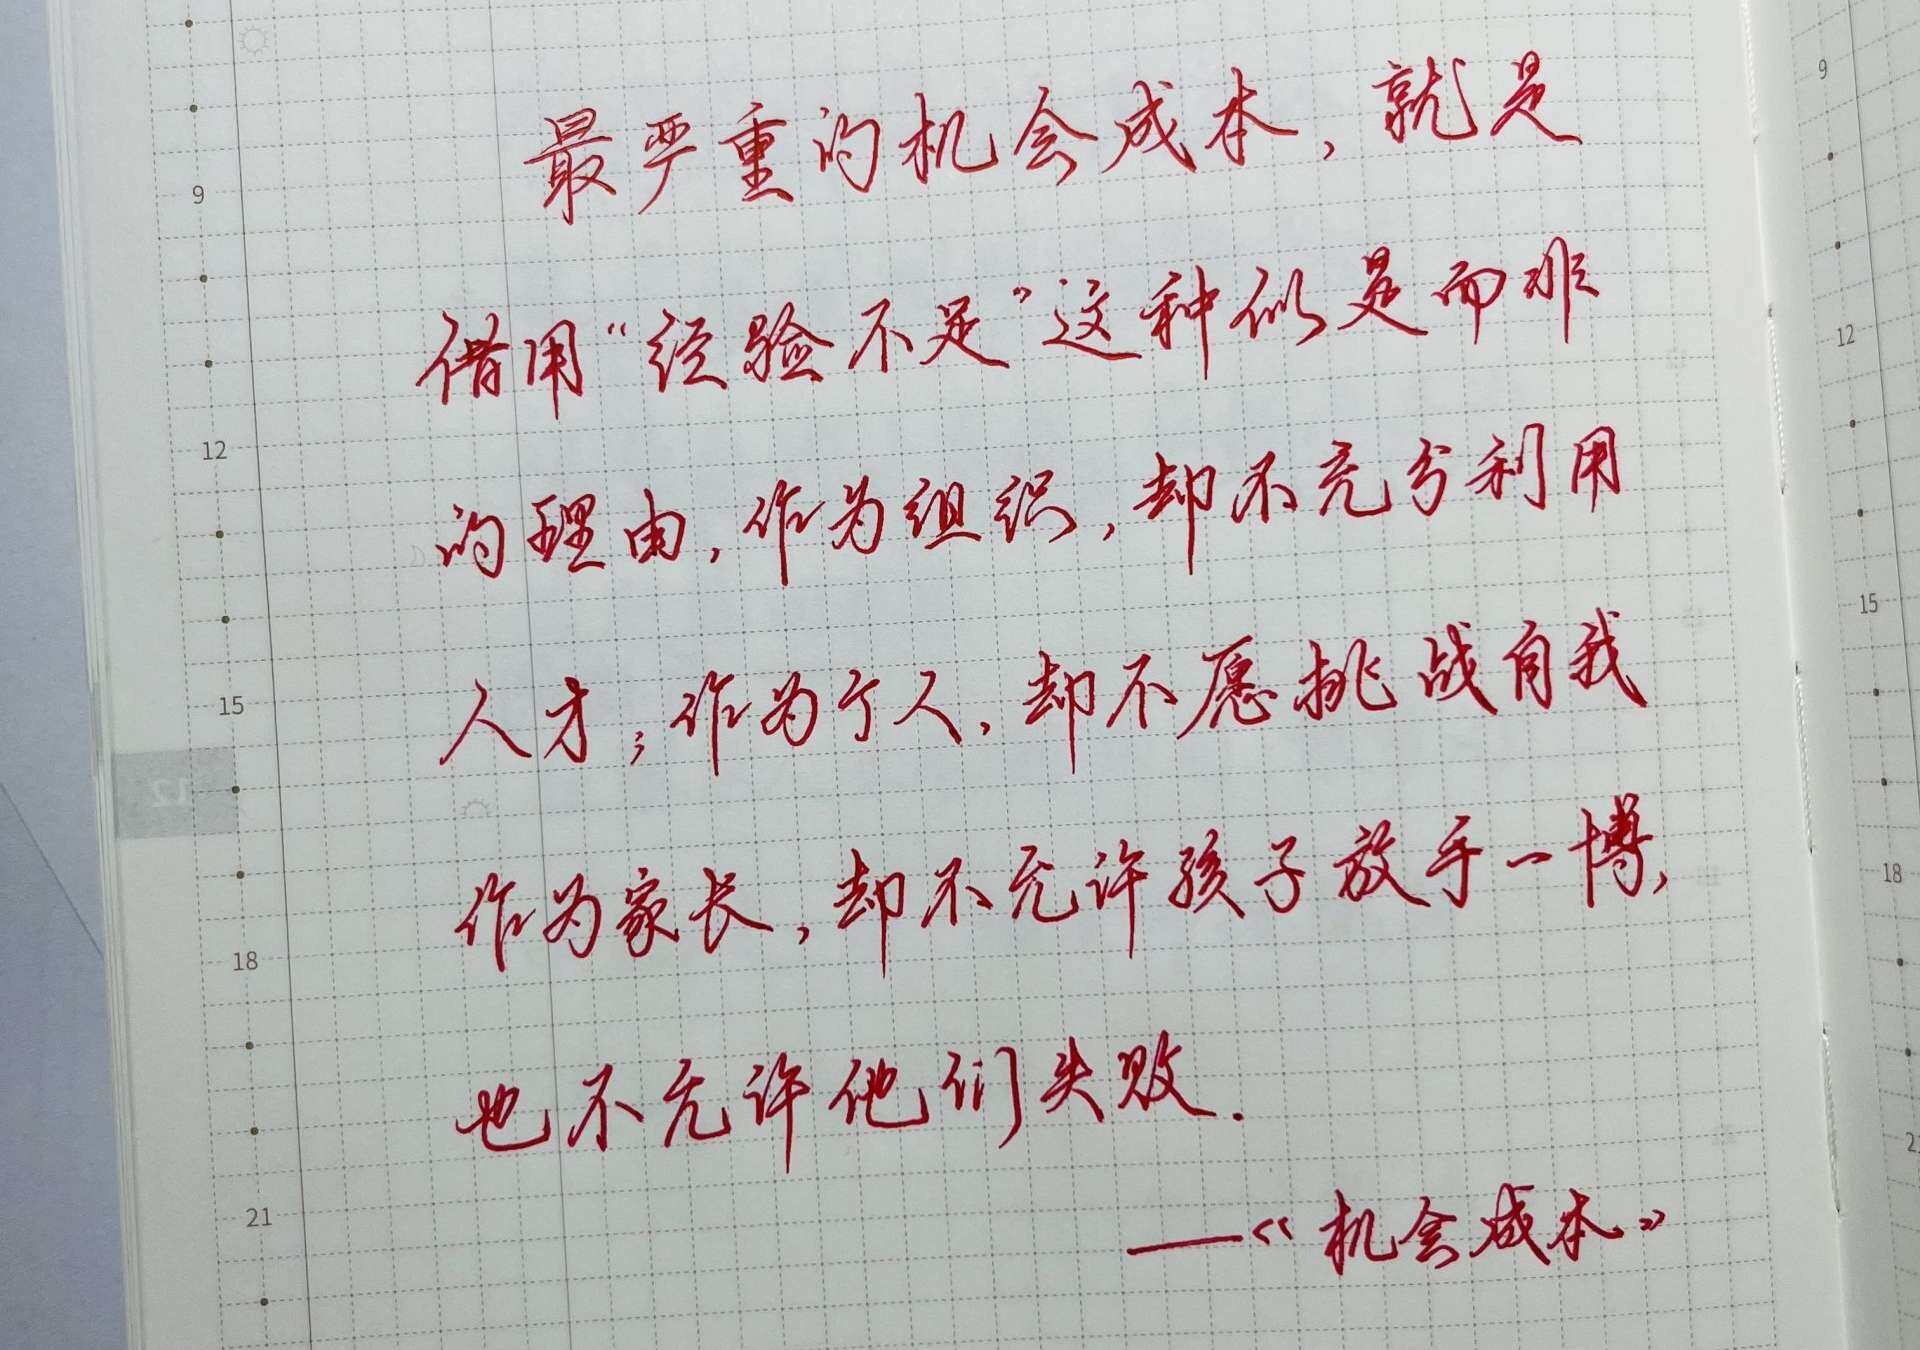 9
最严重的机会成本，就是
9
借用“经验不足”这种似是而非
12
12
的理由，作为组织，却不充分利用
15
人才；作为个人，却不愿挑战自我
15
12
作为家长，却不允许孩子放手一博，
18
18
也不允许他们失败.
21
——《机会成本》